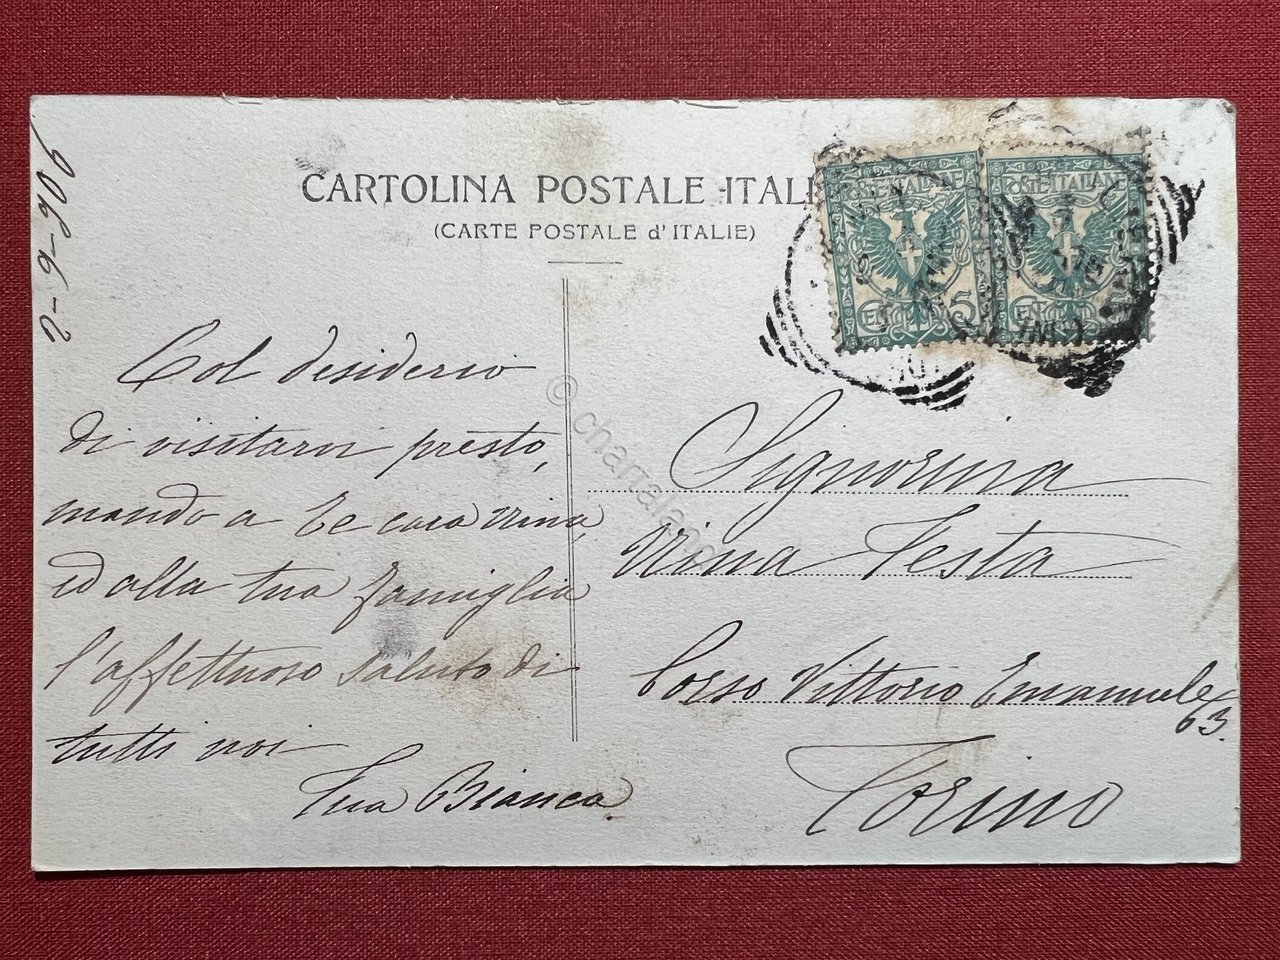 2-6-906
CARTOLINA POSTALE ITALI
(CARTE POSTALE d'ITALIE)
POSTE ITALIANE
CENT. 5
POSTE ITALIANE
CENT. 5
Col desiderio
di visitarvi presto,
mando a te cara Nina,
ed alla tua famiglia
l'affettuoso saluto di
tutti noi
Tua Bianca
Signorina
Nina Testa
Corso Vittorio Emanuele
63.
Torino
© chartaland